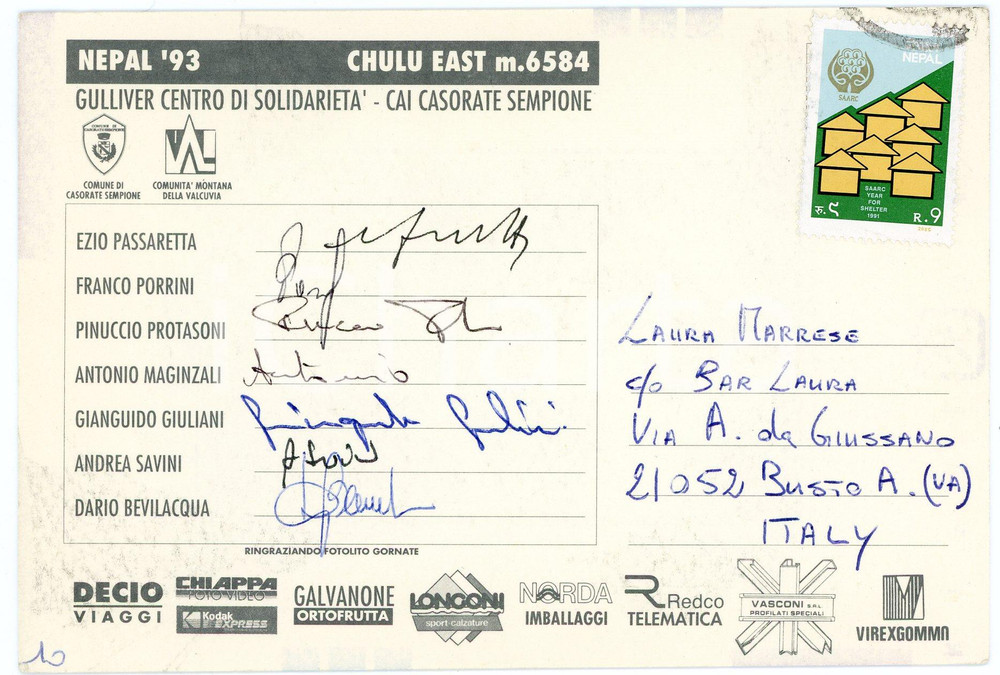 NEPAL '93 CHULU EAST m.6584
GULLIVER CENTRO DI SOLIDARIETA' - CAI CASORATE SEMPIONE
COMUNE DI
CASORATE SEMPIONE
COMUNE DI
CASORATE SEMPIONE
VAL
COMUNITA' MONTANA
DELLA VALCUVIA
NEPAL
SAARC
SAARC
YEAR
FOR
SHELTER
1991
रु. ९
R. 9
EZIO PASSARETTA
FRANCO PORRINI
PINUCCIO PROTASONI
ANTONIO MAGINZALI Antonio
GIANGUIDO GIULIANI Gianguido Giuliani
ANDREA SAVINI A Savini
DARIO BEVILACQUA
RINGRAZIANDO FOTOLITO GORNATE
LAURA MARRESE
c/o BAR LAURA
VIA A. da GIUSSANO
21052 BUSTO A. (VA)
ITALY
DECIO
VIAGGI
CHIAPPA
FOTO VIDEO
Kodak
EXPRESS
GALVANONE
ORTOFRUTTA
LONGONI
sport-calzature
NORDA
IMBALLAGGI
R Redco
TELEMATICA
VASCONI S.R.L.
PROFILATI SPECIALI
VIREXGOMMA
10